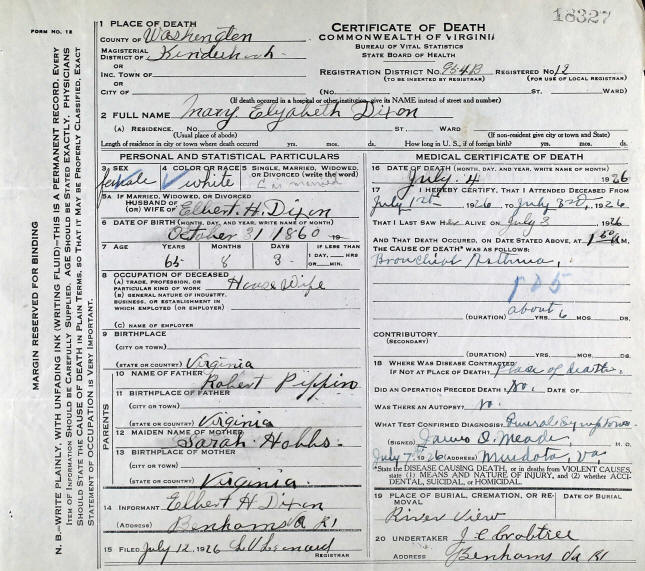 18327
FORM NO. 12
1 PLACE OF DEATH
COUNTY OF Washington
MAGISTERIAL
DISTRICT OF
OR
INC. TOWN OF
OR
CITY OF
CERTIFICATE OF DEATH
COMMONWEALTH OF VIRGINIA
BUREAU OF VITAL STATISTICS
STATE BOARD OF HEALTH
REGISTRATION DISTRICT NO. 954B REGISTERED NO. 12
(TO BE INSERTED BY REGISTRAR) (FOR USE OF LOCAL REGISTRAR)
(No. ST. WARD)
(If death occurred in a hospital or other institution, give its NAME instead of street and number)
2 FULL NAME Mary Elizabeth Dixon
(A) RESIDENCE. No. ST WARD
(Usual place of abode) (If non-resident give city or town and State)
Length of residence in city or town where death occurred yrs. mos. ds. How long in U. S., if of foreign birth? yrs. mos. ds.
PERSONAL AND STATISTICAL PARTICULARS
3 SEX 4 COLOR OR RACE 5 SINGLE, MARRIED, WIDOWED, OR DIVORCED (write the word)
female white married
5A IF MARRIED, WIDOWED, OR DIVORCED
HUSBAND OF
(OR) WIFE OF Elbert H Dixon
6 DATE OF BIRTH (MONTH, DAY, AND YEAR, WRITE NAME OF MONTH)
October 31 1860 19
7 AGE YEARS MONTHS DAYS IF LESS THAN
1 DAY, HRS
OR MIN.
65 8 3
8 OCCUPATION OF DECEASED
(A) TRADE, PROFESSION, OR
PARTICULAR KIND OF WORK House Wife
(B) GENERAL NATURE OF INDUSTRY,
BUSINESS, OR ESTABLISHMENT IN
WHICH EMPLOYED (OR EMPLOYER)
(C) NAME OF EMPLOYER
9 BIRTHPLACE
(CITY OR TOWN)
(STATE OR COUNTRY) Virginia
PARENTS
10 NAME OF FATHER Robert Pippin
11 BIRTHPLACE OF FATHER
(CITY OR TOWN)
(STATE OR COUNTRY) Virginia
12 MAIDEN NAME OF MOTHER Sarah Hobbs
13 BIRTHPLACE OF MOTHER
(CITY OR TOWN)
(STATE OR COUNTRY) Virginia
14 INFORMANT Elbert H Dixon
(ADDRESS) Benhams Va R1
15 FILED July 12 1926 REGISTRAR
MEDICAL CERTIFICATE OF DEATH
16 DATE OF DEATH (MONTH, DAY, AND YEAR, WRITE NAME OF MONTH)
July. 4 1926
17 I HEREBY CERTIFY, THAT I ATTENDED DECEASED FROM
July 1st 1926 TO July 3rd, 1926
THAT I LAST SAW HER ALIVE ON July 3 1926
AND THAT DEATH OCCURRED, ON DATE STATED ABOVE, AT M.
THE CAUSE OF DEATH* WAS AS FOLLOWS:
Bronchial Asthma,
105
about 6
(DURATION) YRS. MOS. DS.
CONTRIBUTORY
(SECONDARY)
(DURATION) YRS. MOS. DS.
18 WHERE WAS DISEASE CONTRACTED
IF NOT AT PLACE OF DEATH? Place of death.
DID AN OPERATION PRECEDE DEATH? No. DATE OF
WAS THERE AN AUTOPSY? No.
WHAT TEST CONFIRMED DIAGNOSIS? General Symptoms
(SIGNED) James O. Meade, M. D.
July 7th 1926 (ADDRESS) Mendota, Va.
*State the DISEASE CAUSING DEATH, or in deaths from VIOLENT CAUSES, state (1) MEANS AND NATURE OF INJURY, and (2) whether ACCIDENTAL, SUICIDAL, or HOMICIDAL.
19 PLACE OF BURIAL, CREMATION, OR REMOVAL DATE OF BURIAL
River View
20 UNDERTAKER J C Crabtree
ADDRESS Benhams Va R1
MARGIN RESERVED FOR BINDING
N. B.—WRITE PLAINLY, WITH UNFADING INK (WRITING FLUID)—THIS IS A PERMANENT RECORD. EVERY
ITEM OF INFORMATION SHOULD BE CAREFULLY SUPPLIED. AGE SHOULD BE STATED EXACTLY. PHYSICIANS
SHOULD STATE THE CAUSE OF DEATH IN PLAIN TERMS, SO THAT IT MAY BE PROPERLY CLASSIFIED. EXACT
STATEMENT OF OCCUPATION IS VERY IMPORTANT.